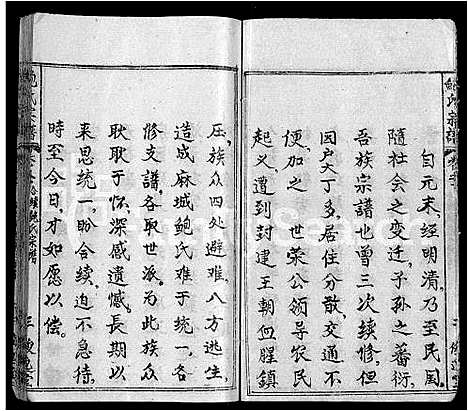 鲍氏宗譜
自元末、经明清、乃至民国、
隨社会之变迁、子孙之蕃衍、
吾族宗譜也曾三次续修、但
因户大丁多、居住分散、交通不
便、加之、世荣公领导农民
起义、遭到封建王朝血腥镇
压、族众四处避难、八方逃生、
造成麻城鲍氏难于统一、各
修支譜、各取世派、为此族众
耿耿于怀、深感遗憾、長期以
来思统一、盼合续、迫不急待、
時至今日、才如愿以偿。
鲍氏宗譜